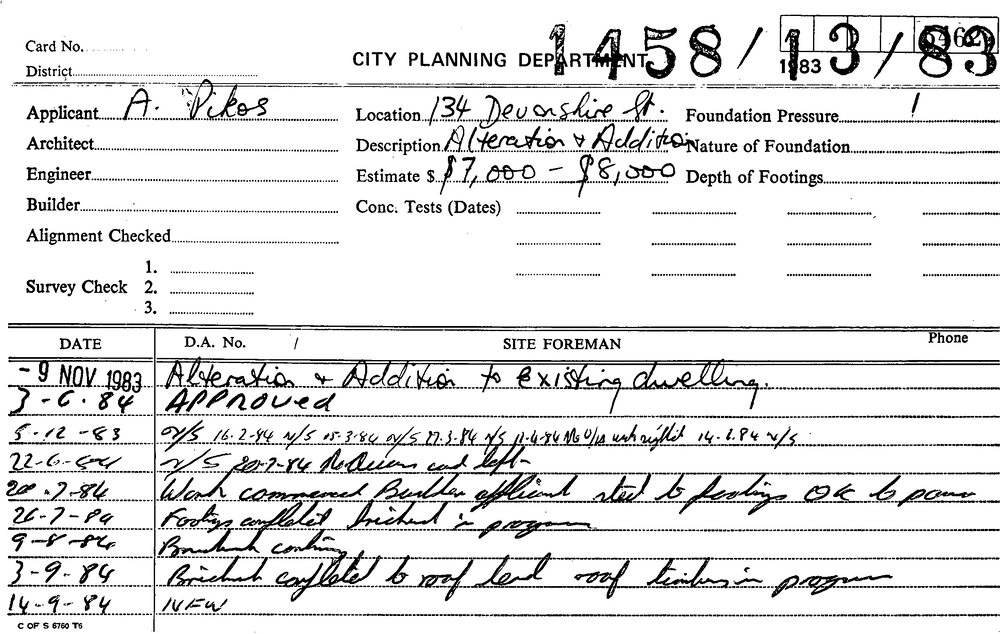 Card No.
CITY PLANNING DEPARTMENT
1458/13/83
1983
District
Applicant A. Pikos
Location 134 Devonshire St.
Foundation Pressure
Architect
Description Alteration & Addition
Nature of Foundation
Engineer
Estimate $ $7,000 - $8,000
Depth of Footings
Builder
Conc. Tests (Dates)
Alignment Checked
1.
Survey Check 2.
3.
DATE D.A. No. / SITE FOREMAN Phone
-9 NOV 1983 Alteration & Addition to existing dwelling.
3-6-84 APPROVED
5-12-83 N/S 16-2-84 N/S 15-3-84 N/S 27-3-84 N/S 14-6-84 N/S
22-6-84 N/S 20-7-84 card left
20-7-84 Work commenced Builder applicant steel to footings OK to pour
26-7-84 Footings completed brickwork in progress
9-8-84 Brickwork
3-9-84 Brickwork completed to roof roof timbers in progress
14-9-84
C OF S 6760 T6